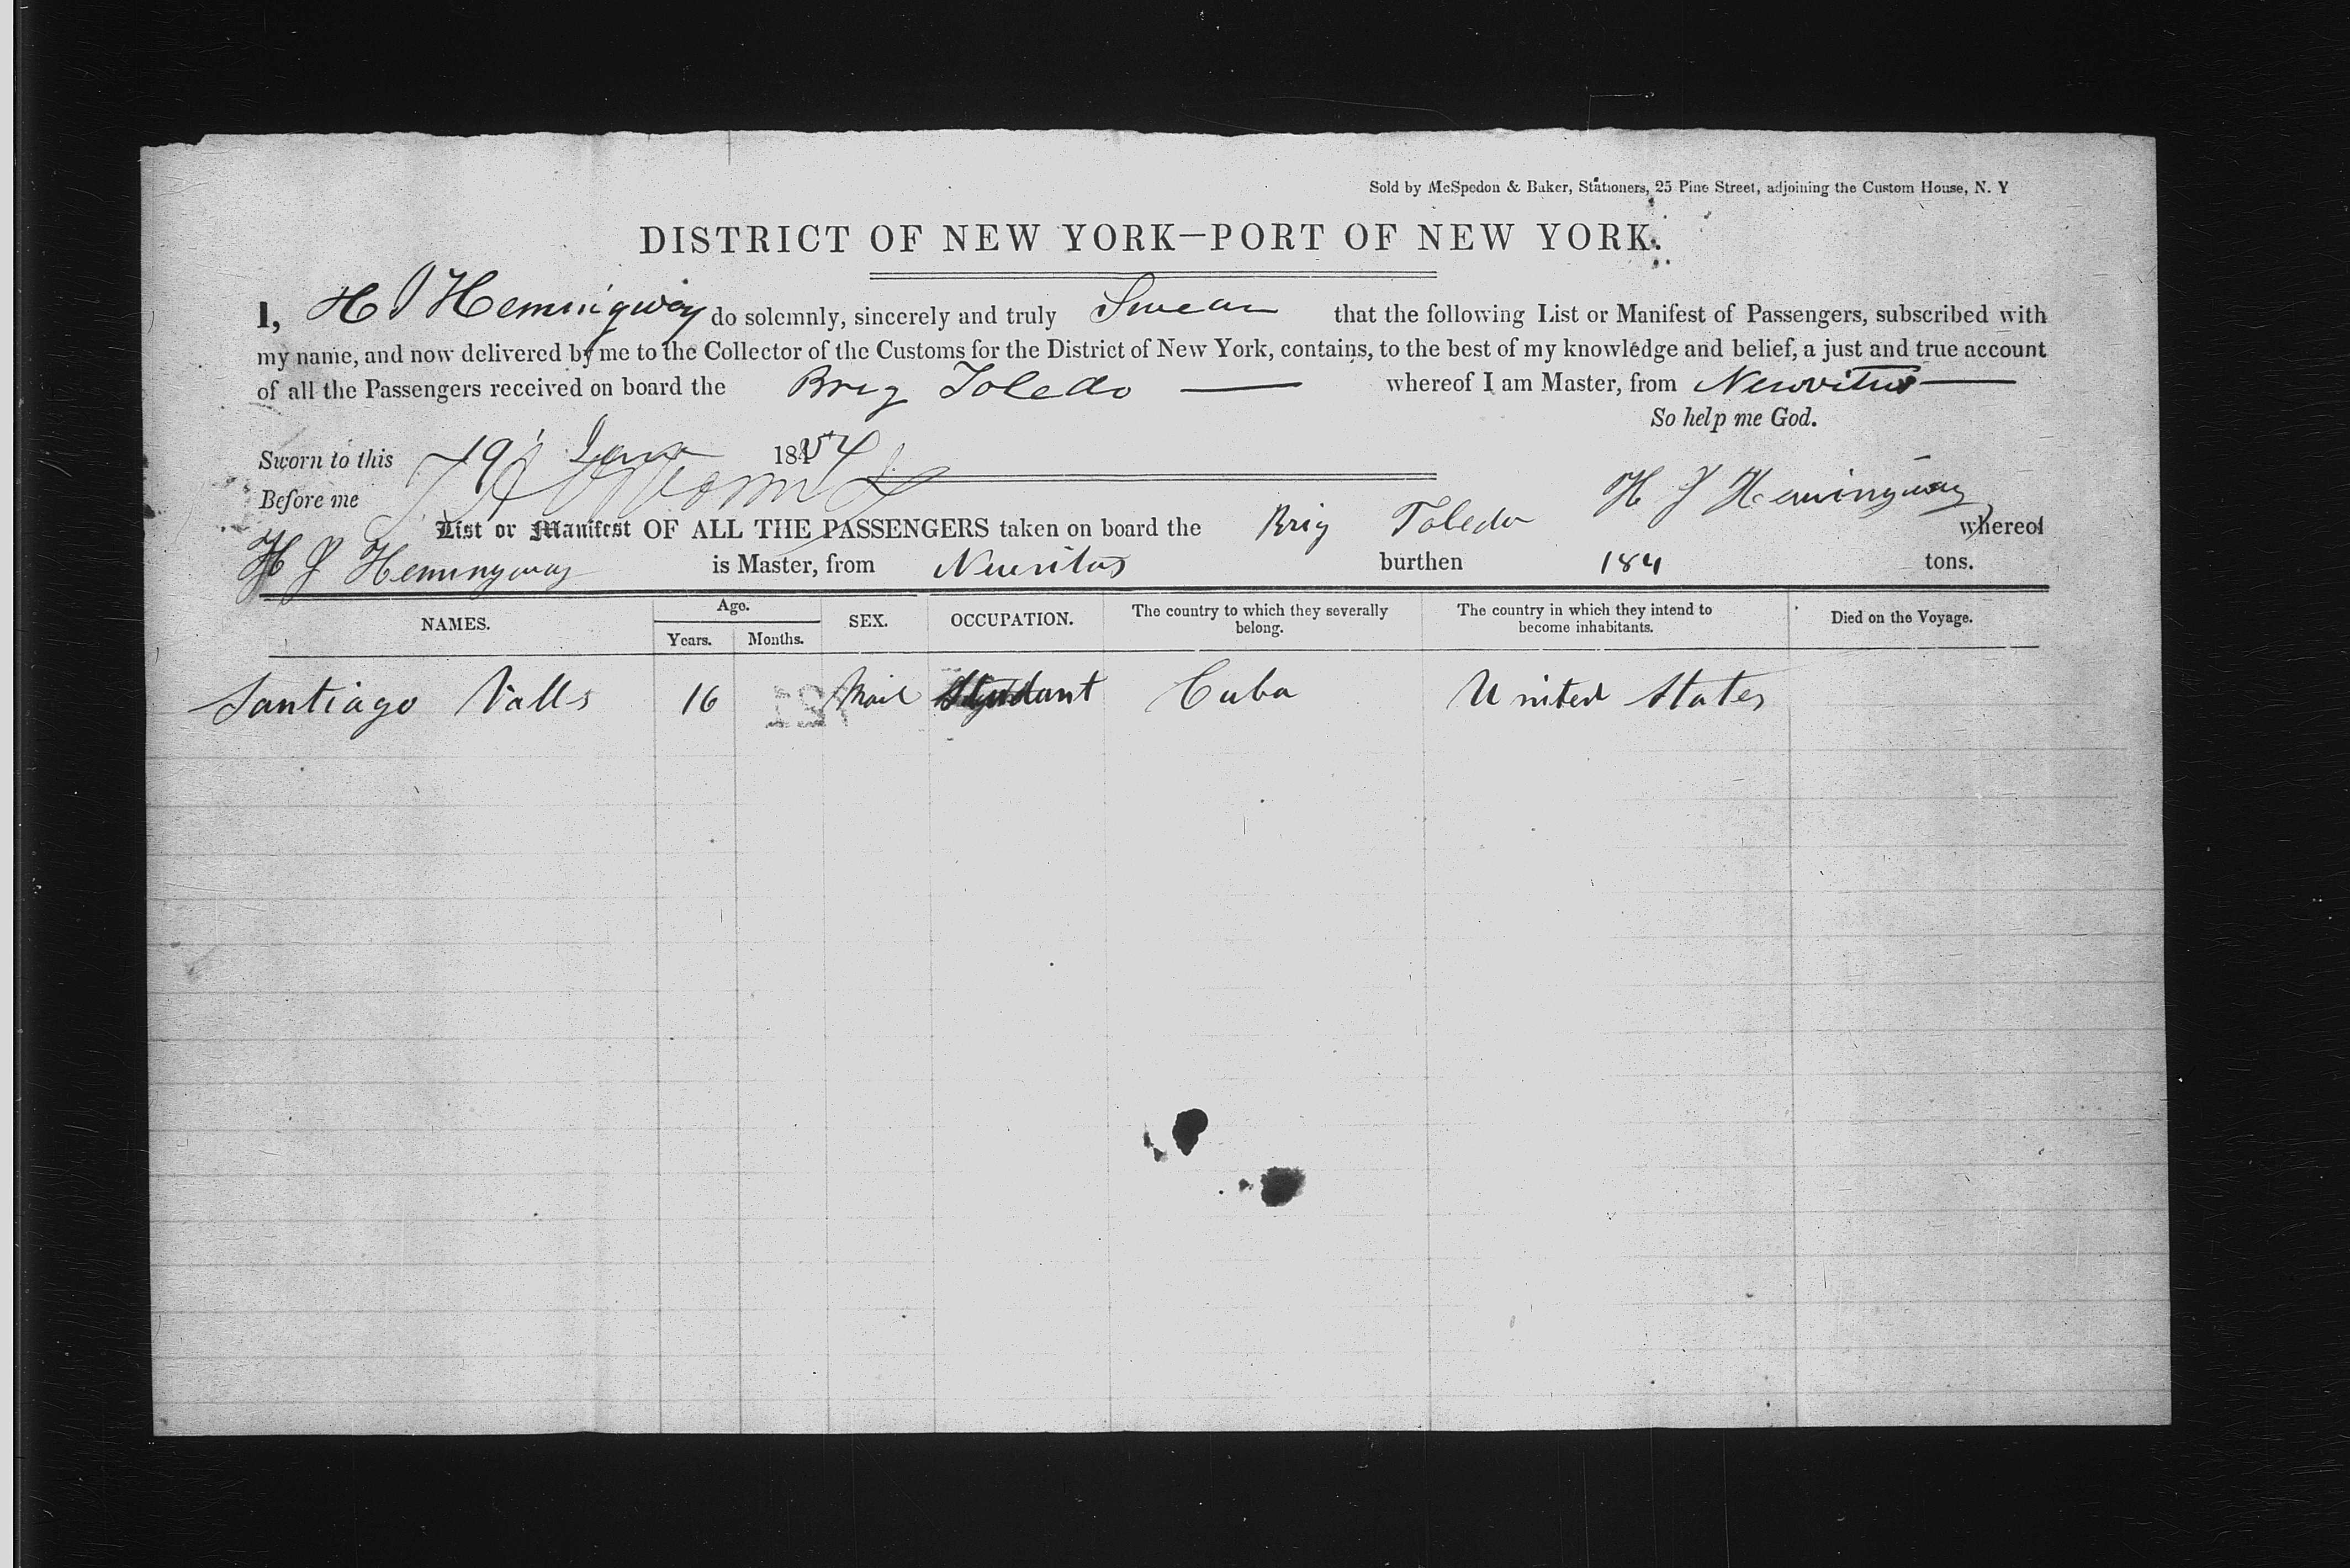 Sold by McSpedon & Baker, Stationers, 25 Pine Street, adjoining the Custom House, N. Y
DISTRICT OF NEW YORK—PORT OF NEW YORK.
I, H J Hemingway do solemnly, sincerely and truly Swear that the following List or Manifest of Passengers, subscribed with
my name, and now delivered by me to the Collector of the Customs for the District of New York, contains, to the best of my knowledge and belief, a just and true account
of all the Passengers received on board the Brig Toledo — whereof I am Master, from Neuvitus —
So help me God.
Sworn to this 19 1854
Before me H J Hemingway
List or Manifest OF ALL THE PASSENGERS taken on board the Brig Toledo whereof
H J Hemingway is Master, from Neuvitas burthen 184 tons.
NAMES. Age. Years. Months. SEX. OCCUPATION. The country to which they severally belong. The country in which they intend to become inhabitants. Died on the Voyage.
Santiago Valls 16 Mail Studant Cuba United States